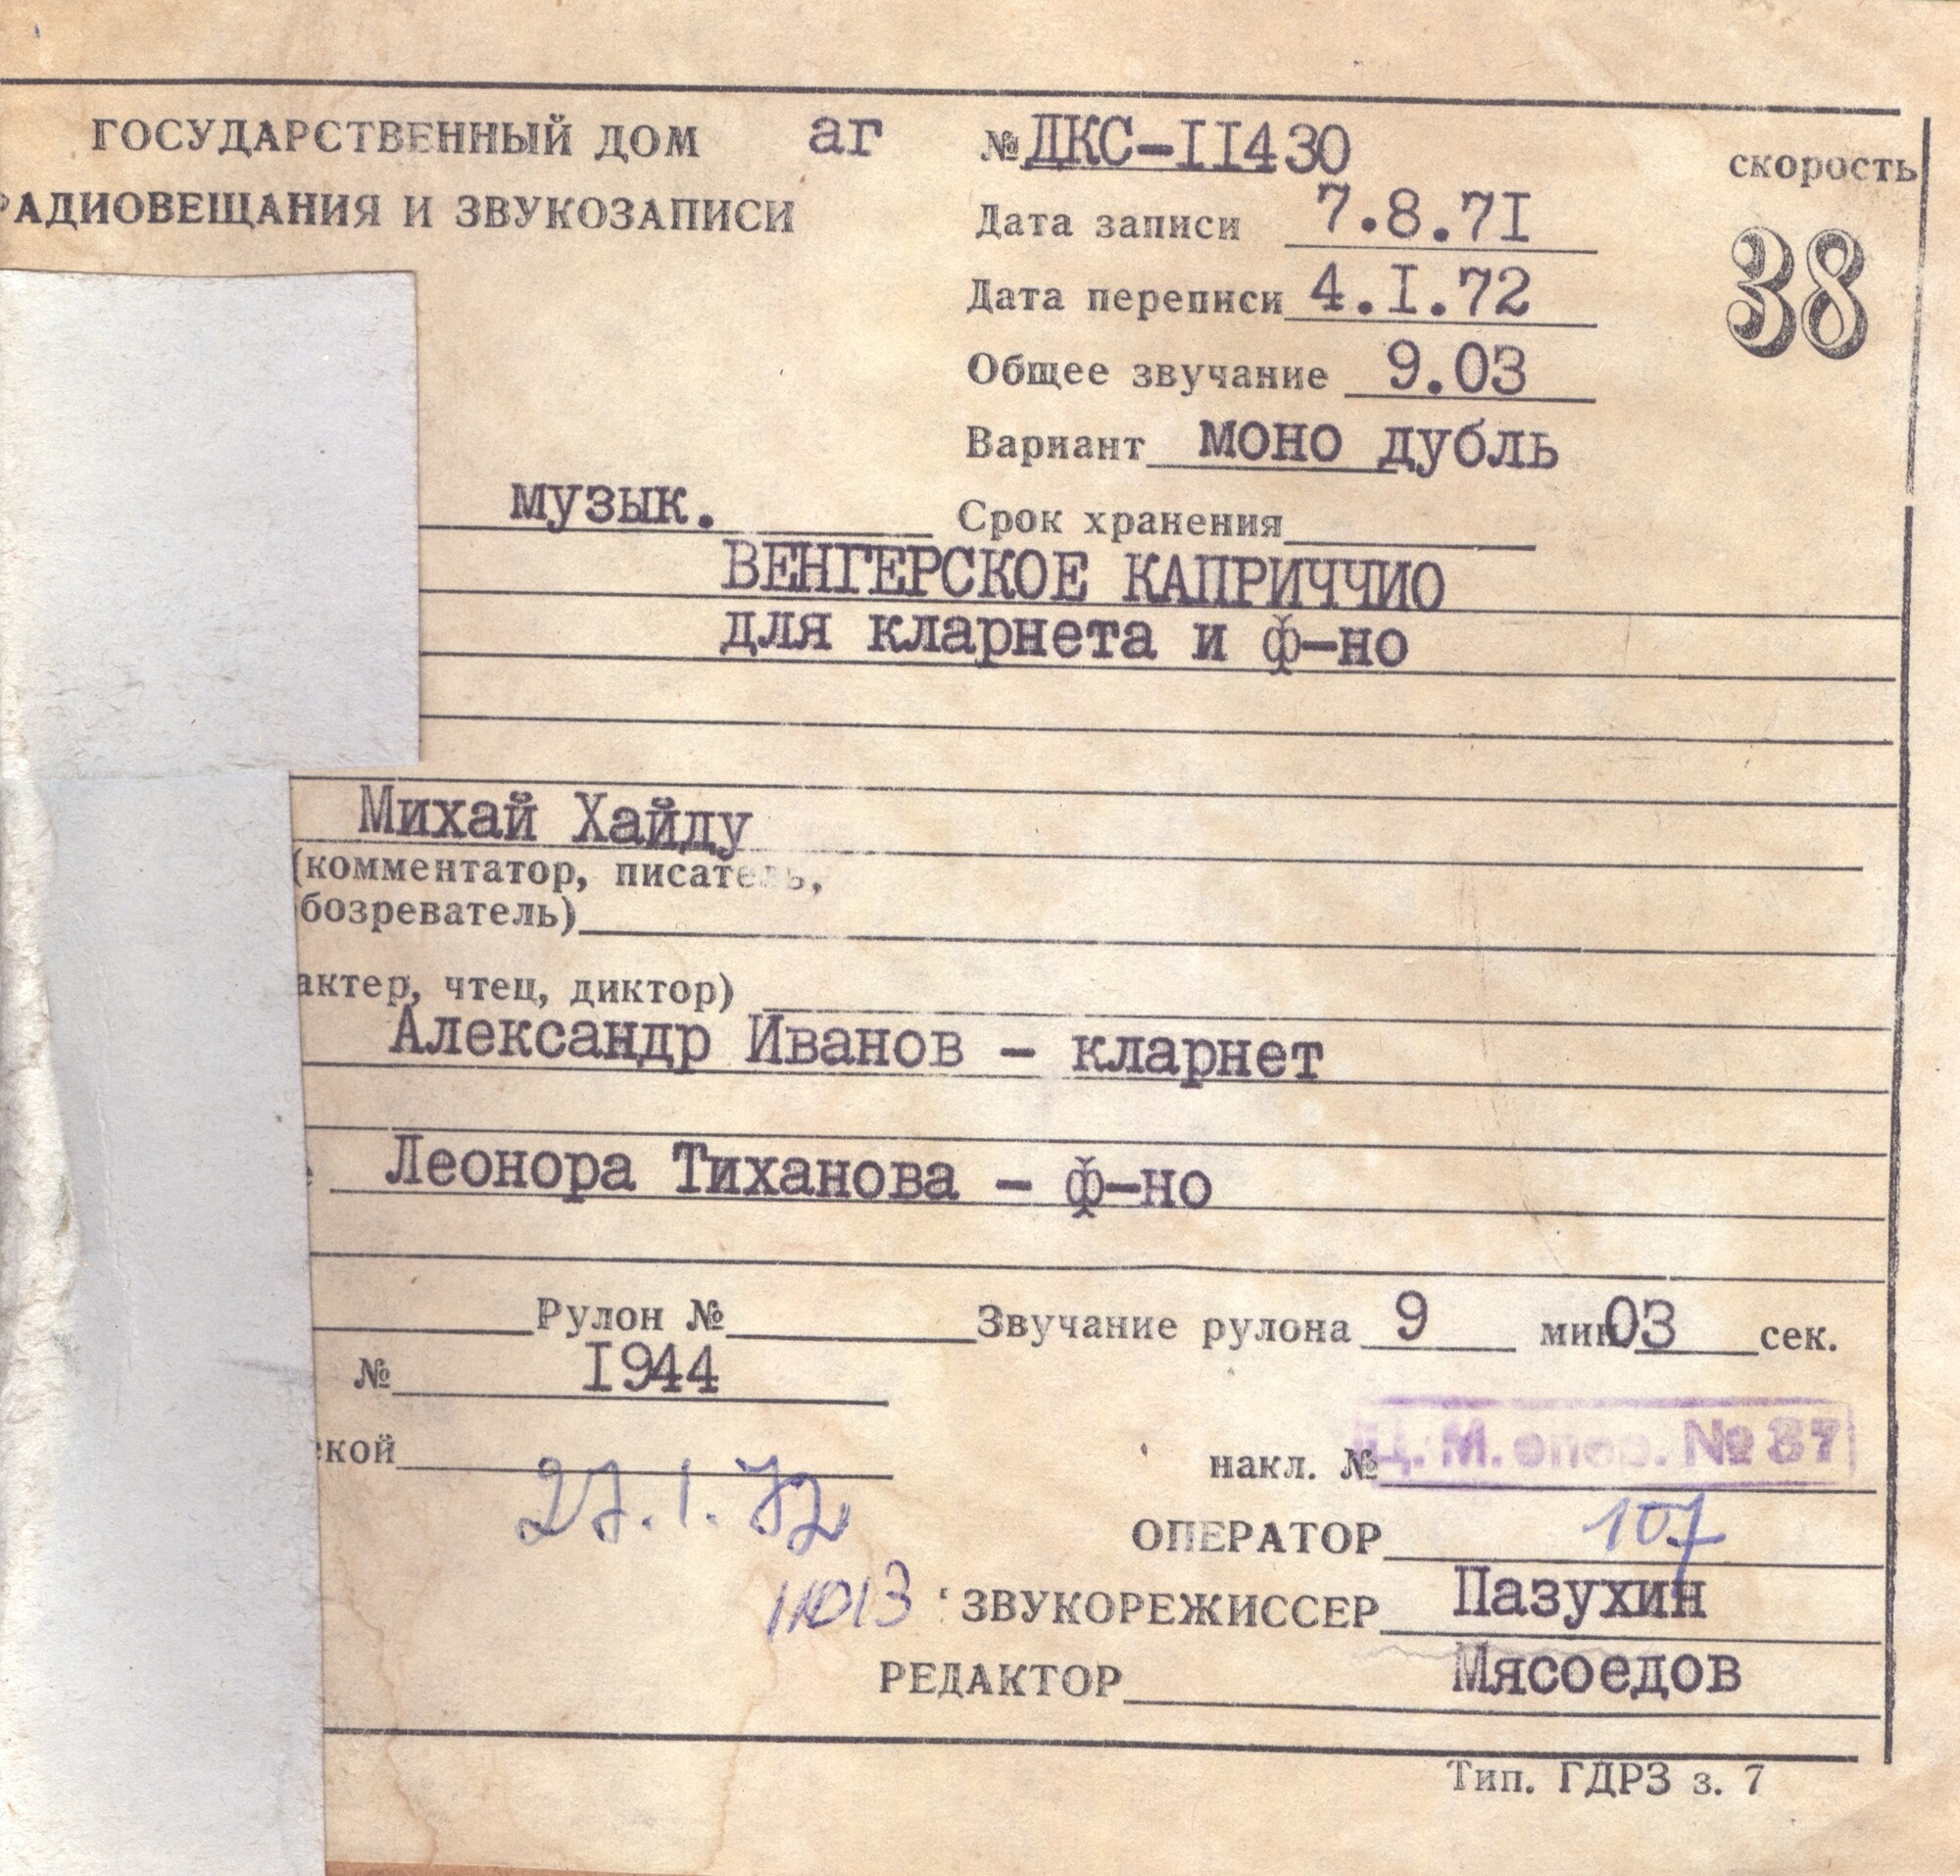 ГОСУДАРСТВЕННЫЙ ДОМ аг № ДКС-II430
скорость
РАДИОВЕЩАНИЯ И ЗВУКОЗАПИСИ
Дата записи 7.8.7I
38
Дата переписи 4.I.72
Общее звучание 9.03
Вариант моно дубль
музык. Срок хранения
ВЕНГЕРСКОЕ КАПРИЧЧИО
для кларнета и ф-но
Михай Хайду
(комментатор, писатель,
бозреватель)
актер, чтец, диктор)
Александр Иванов - кларнет
Леонора Тиханова - ф-но
Рулон № Звучание рулона 9 мин 03 сек.
№ I944
ской накл. № Ц. М. опер. № 37
27.1.72
ОПЕРАТОР 107
11013 ЗВУКОРЕЖИССЕР Пазухин
РЕДАКТОР Мясоедов
Тип. ГДРЗ з. 7